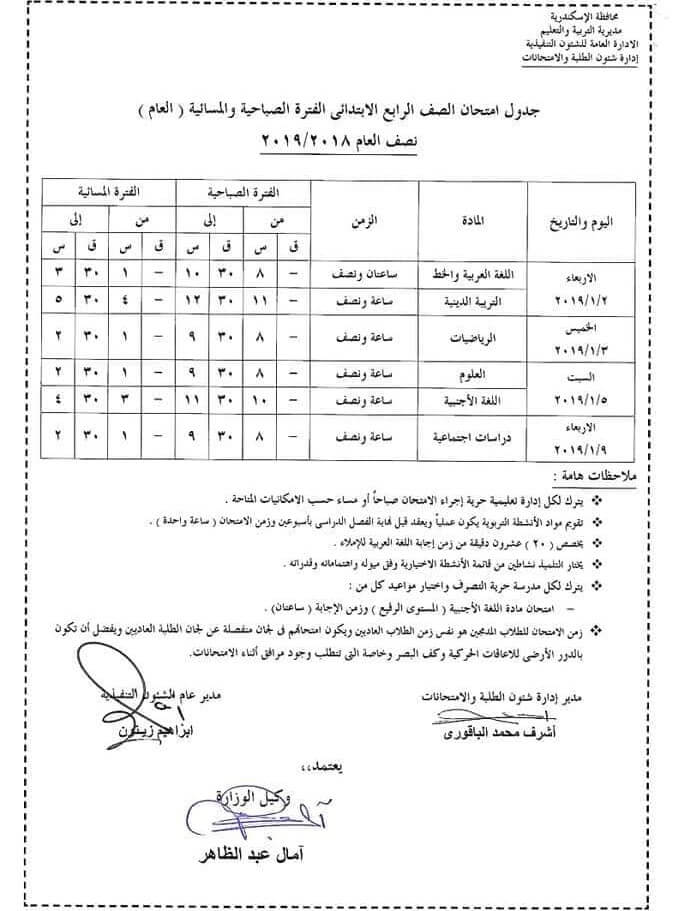 محافظة الإسكندرية
مديرية التربية والتعليم
الادارة العامة للشئون التنفيذية
إدارة شئون الطلبة والامتحانات
جدول امتحان الصف الرابع الابتدائى الفترة الصباحية والمسائية ( العام )
نصف العام ٢٠١٩/٢٠١٨
اليوم والتاريخ المادة الزمن الفترة الصباحية الفترة المسائية
من إلى من إلى
ق س ق س ق س ق س
الاربعاء ٢٠١٩/١/٢ اللغة العربية والخط ساعتان ونصف – ٨ ٣٠ ١٠ – ١ ٣٠ ٣
التربية الدينية ساعة ونصف – ١١ ٣٠ ١٢ – ٤ ٣٠ ٥
الخميس ٢٠١٩/١/٣ الرياضيات ساعة ونصف – ٨ ٣٠ ٩ – ١ ٣٠ ٢
السبت ٢٠١٩/١/٥ العلوم ساعة ونصف – ٨ ٣٠ ٩ – ١ ٣٠ ٢
اللغة الأجنبية ساعة ونصف – ١٠ ٣٠ ١١ – ٣ ٣٠ ٤
الاربعاء ٢٠١٩/١/٩ دراسات اجتماعية ساعة ونصف – ٨ ٣٠ ٩ – ١ ٣٠ ٢
ملاحظات هامة :
❖ يترك لكل إدارة تعليمية حرية إجراء الامتحان صباحاً أو مساء حسب الامكانيات المتاحة .
❖ تقويم مواد الأنشطة التربوية يكون عملياً ويعقد قبل نهاية الفصل الدراسى بأسبوعين وزمن الامتحان ( ساعة واحدة ) .
❖ يخصص ( ٢٠ ) عشرون دقيقة من زمن إجابة اللغة العربية للإملاء .
❖ يختار التلميذ نشاطين من قائمة الأنشطة الاختيارية وفق ميوله واهتماماته وقدراته .
❖ يترك لكل مدرسة حرية التصرف واختيار مواعيد كل من :
– امتحان مادة اللغة الأجنبية ( المستوى الرفيع ) وزمن الإجابة ( ساعتان) .
❖ زمن الامتحان للطلاب المدمجين هو نفس زمن الطلاب العاديين ويكون امتحانهم فى لجان منفصلة عن لجان الطلبة العاديين ويفضل أن تكون
بالدور الأرضى للاعاقات الحركية وكف البصر وخاصة التى تتطلب وجود مرافق أثناء الامتحانات.
مدير إدارة شئون الطلبة والامتحانات مدير عام الشئون التنفيذية
أشرف محمد الباقورى ابراهيم زيتون
يعتمد،،
وكيل الوزارة
آمال عبد الظاهر